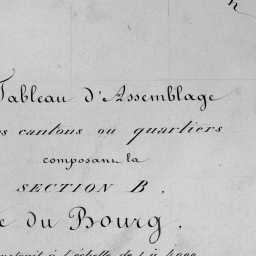 Tableau d'Assemblage
cantons ou quartiers
composant la
SECTION B.
du Bourg.
à l'échelle de 1 à